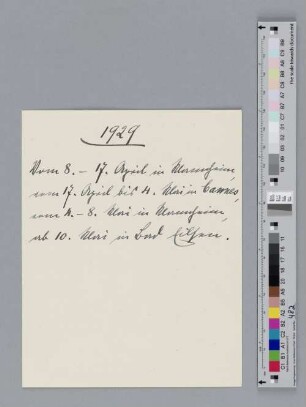 1929
Vom 8. – 17. April in Mannheim,
vom 17. April bis 4. Mai in Cannes,
vom 4. – 8. Mai in Mannheim,
ab 10. Mai in Bad Eilsen.